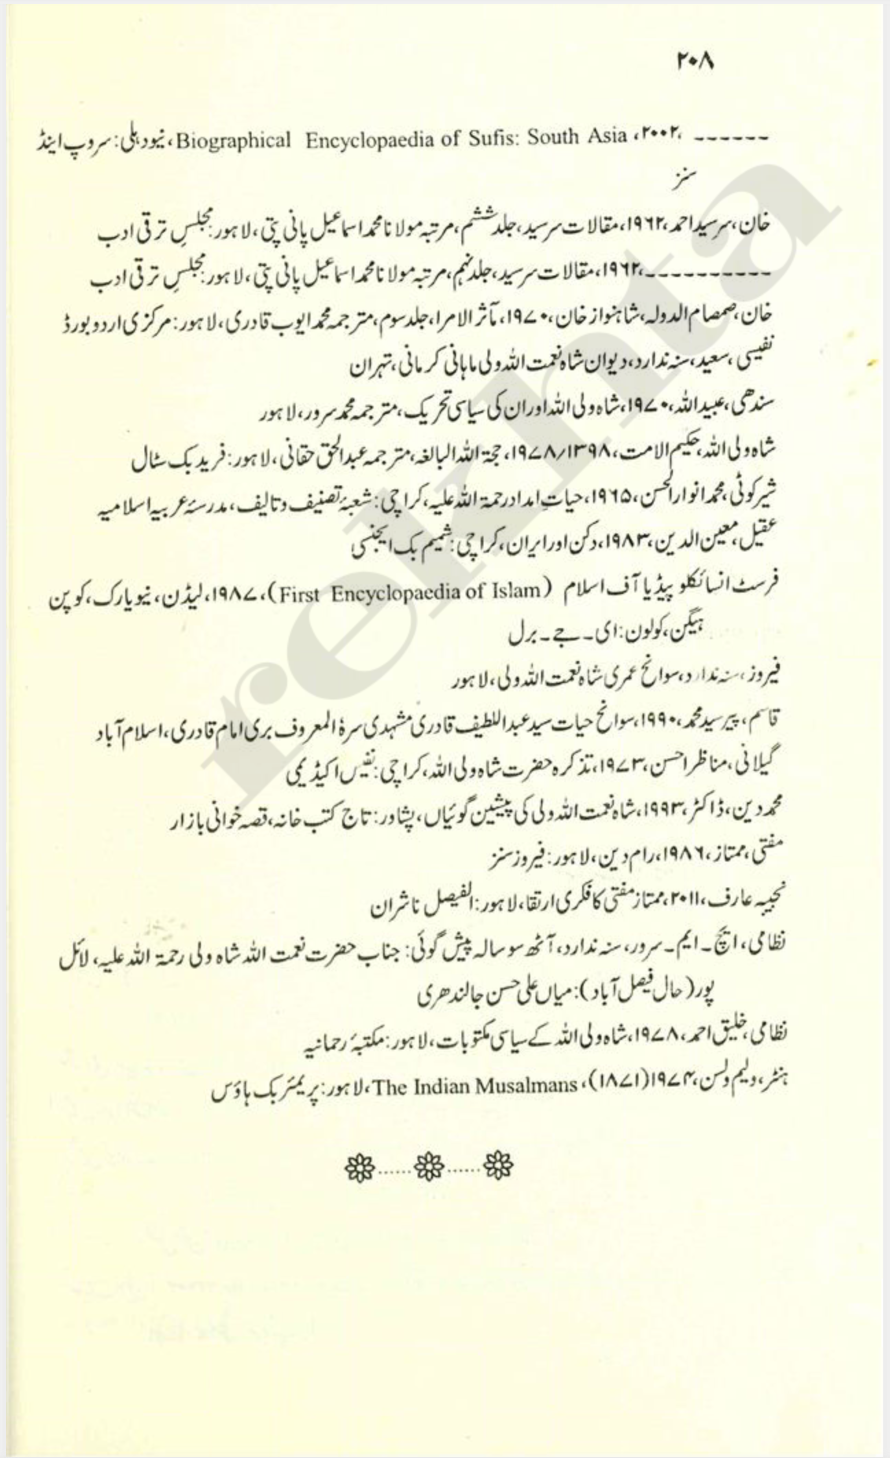 ۲۰۸
------ ،۲۰۰۲، Biographical Encyclopaedia of Sufis: South Asia، نیو دہلی: سروپ اینڈ
سنز
خان، سرسید احمد، ۱۹۶۲، مقالات سرسید، جلد ششم، مرتبہ مولانا محمد اسماعیل پانی پتی، لاہور: مجلسِ ترقی ادب
-----------، ۱۹۶۲، مقالات سرسید، جلد نہم، مرتبہ مولانا محمد اسماعیل پانی پتی، لاہور: مجلسِ ترقی ادب
خان، صمصام الدولہ، شاہنواز خان، ۱۹۷۰، مآثر الامرا، جلد سوم، مترجمہ محمد ایوب قادری، لاہور: مرکزی اردو بورڈ
نفیسی، سعید، سنہ ندارد، دیوان شاہ نعمت اللہ ولی ماہانی کرمانی، تہران
سندھی، عبید اللہ، ۱۹۷۰، شاہ ولی اللہ اور ان کی سیاسی تحریک، مترجمہ محمد سرور، لاہور
شاہ ولی اللہ، حکیم الامت، ۱۳۹۸/۱۹۷۸، حجۃ اللہ البالغہ، مترجمہ عبدالحق حقانی، لاہور: فرید بک سٹال
شیرکوٹی، محمد انوار الحسن، ۱۹۶۵، حیاتِ امداد رحمۃ اللہ علیہ، کراچی: شعبۂ تصنیف و تالیف، مدرسۂ عربیہ اسلامیہ
عقیل، معین الدین، ۱۹۸۳، دکن اور ایران، کراچی: شمیم بک ایجنسی
فرسٹ انسائکلو پیڈیا آف اسلام (First Encyclopaedia of Islam)، ۱۹۸۷، لیڈن، نیو یارک، کوپن
ہیگن، کولون: ای۔ جے۔ برل
فیروز، سنہ ندارد، سوانح عمری شاہ نعمت اللہ ولی، لاہور
قاسم، پیر سید محمد، ۱۹۹۰، سوانح حیات سید عبداللطیف قادری مشہدی سرۂ المعروف بری امام قادری، اسلام آباد
گیلانی، مناظر احسن، ۱۹۷۳، تذکرہ حضرت شاہ ولی اللہ، کراچی: نفیس اکیڈیمی
محمد دین، ڈاکٹر، ۱۹۹۳، شاہ نعمت اللہ ولی کی پیشین گوئیاں، پشاور: تاج کتب خانہ، قصہ خوانی بازار
مفتی، ممتاز، ۱۹۸۶، رام دین، لاہور: فیروز سنز
نجیبہ عارف، ۲۰۱۱، ممتاز مفتی کا فکری ارتقا، لاہور: الفیصل ناشران
نظامی، ایچ۔ ایم۔ سرور، سنہ ندارد، آٹھ سو سالہ پیش گوئی: جناب حضرت نعمت اللہ شاہ ولی رحمۃ اللہ علیہ، لائل
پور (حال فیصل آباد): میاں علی حسن جالندھری
نظامی، خلیق احمد، ۱۹۷۸، شاہ ولی اللہ کے سیاسی مکتوبات، لاہور: مکتبۂ رحمانیہ
ہنٹر، ولیم ولسن، ۱۹۷۴ (۱۸۷۱)، The Indian Musalmans، لاہور: پریمئر بک ہاؤس
rekhta